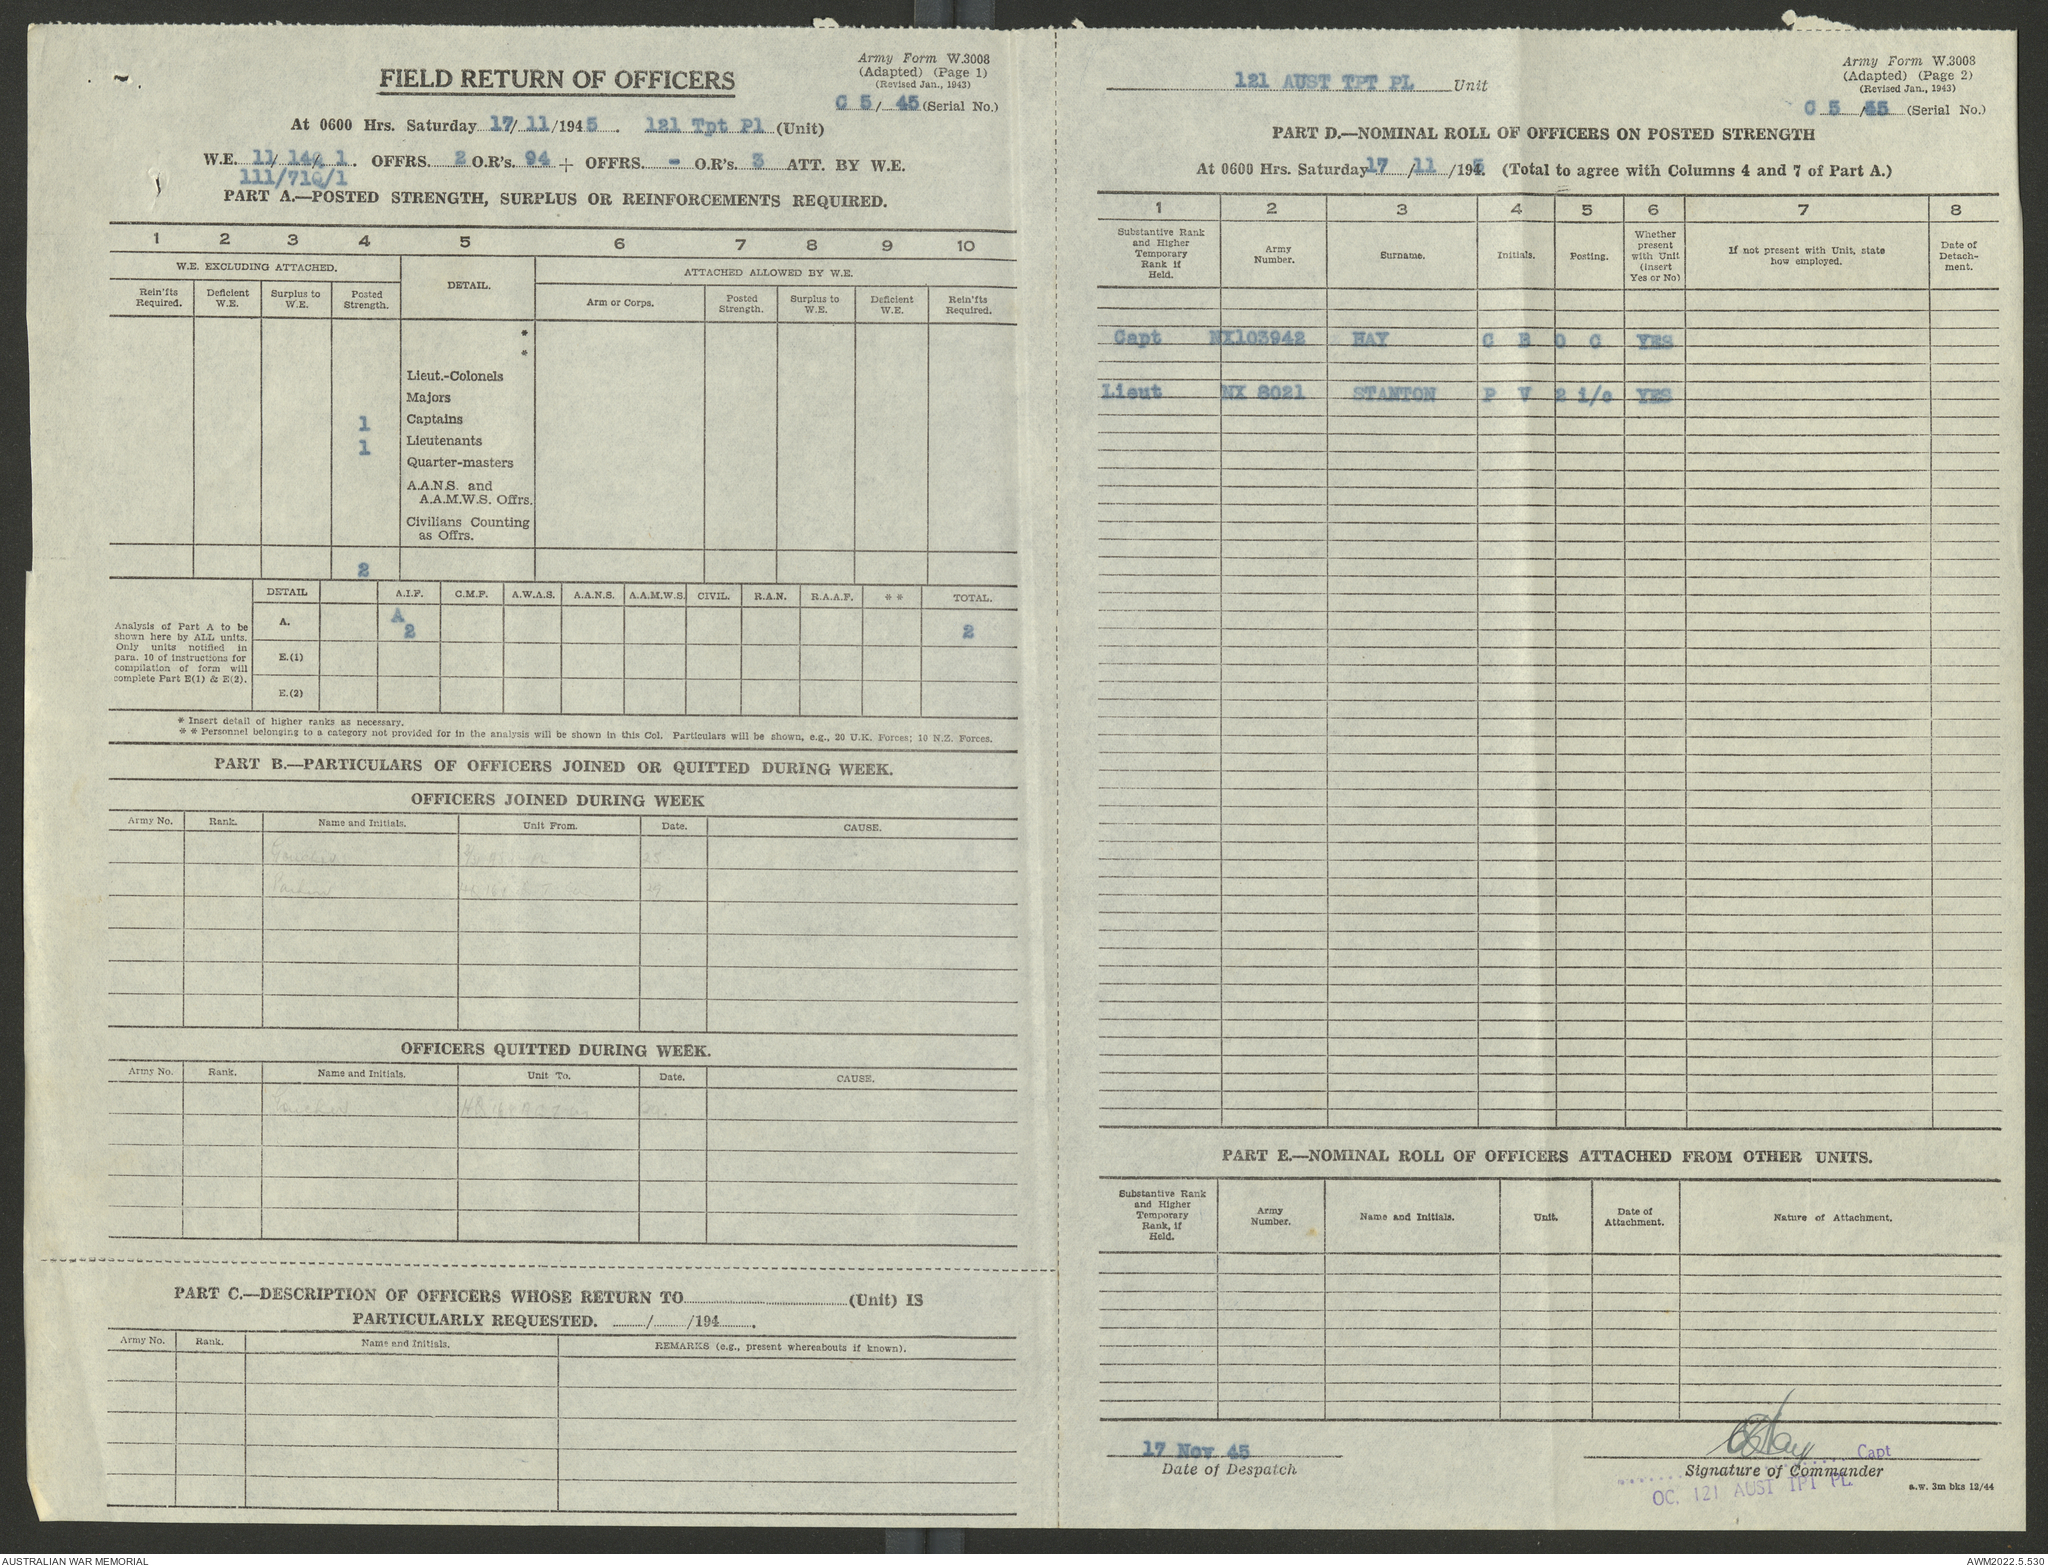 Army Form W.3008
(Adapted) (Page 1)
(Revised Jan., 1943)
FIELD RETURN OF OFFICERS
C 5/ 45 (Serial No.)
At 0600 Hrs. Saturday 17/ 11 /1945 . 121 Tpt Pl (Unit)
W.E. 11/ 14Q/ 1. OFFRS. 2 O.R's. 94 + OFFRS. - O.R's. 3 ATT. BY W.E.
111/71Q/1
PART A.—POSTED STRENGTH, SURPLUS OR REINFORCEMENTS REQUIRED.
1 2 3 4 5 6 7 8 9 10
W.E. EXCLUDING ATTACHED. DETAIL. ATTACHED ALLOWED BY W.E.
Rein'fts Required. Deficient W.E. Surplus to W.E. Posted Strength. Arm or Corps. Posted Strength. Surplus to W.E. Deficient W.E. Rein'fts Required.
*
*
Lieut.-Colonels
Majors
1 Captains
1 Lieutenants
Quarter-masters
A.A.N.S. and
A.A.M.W.S. Offrs.
Civilians Counting
as Offrs.
2
DETAIL A.I.F. C.M.F. A.W.A.S. A.A.N.S. A.A.M.W.S. CIVIL. R.A.N. R.A.A.F. * * TOTAL.
Analysis of Part A to be
shown here by ALL units.
Only units notified in
para. 10 of instructions for
compilation of form will
complete Part E(1) & E(2).
A. A 2 2
E.(1)
E.(2)
* Insert detail of higher ranks as necessary.
* * Personnel belonging to a category not provided for in the analysis will be shown in this Col. Particulars will be shown, e.g., 20 U.K. Forces; 10 N.Z. Forces.
PART B.—PARTICULARS OF OFFICERS JOINED OR QUITTED DURING WEEK.
OFFICERS JOINED DURING WEEK
Army No. Rank. Name and Initials. Unit From. Date. CAUSE.
25
29
OFFICERS QUITTED DURING WEEK.
Army No. Rank. Name and Initials. Unit To. Date. CAUSE.
HQ
PART C.—DESCRIPTION OF OFFICERS WHOSE RETURN TO (Unit) IS
PARTICULARLY REQUESTED. / /194 .
Army No. Rank. Name and Initials. REMARKS (e.g., present whereabouts if known).
Army Form W.3008
(Adapted) (Page 2)
(Revised Jan., 1943)
121 AUST TPT PL Unit
C 5 /45 (Serial No.)
PART D.—NOMINAL ROLL OF OFFICERS ON POSTED STRENGTH
At 0600 Hrs. Saturday 17 /11 /1945. (Total to agree with Columns 4 and 7 of Part A.)
1 2 3 4 5 6 7 8
Substantive Rank and Higher Temporary Rank if Held. Army Number. Surname. Initials. Posting. Whether present with Unit (insert Yes or No) If not present with Unit, state how employed. Date of Detach-ment.
Capt NX103942 HAY C B O C YES
Lieut NX 8021 STANTON P V 2 i/c YES
PART E.—NOMINAL ROLL OF OFFICERS ATTACHED FROM OTHER UNITS.
Substantive Rank and Higher Temporary Rank, if Held. Army Number. Name and Initials. Unit. Date of Attachment. Nature of Attachment.
17 Nov 45
Date of Despatch
CBHay Capt
Signature of Commander
OC, 121 AUST TPT PL
a.w. 3m bks 12/44
AUSTRALIAN WAR MEMORIAL
AWM2022.5.530